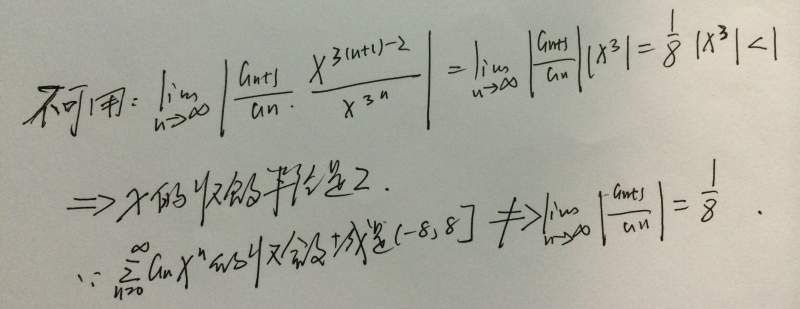 不可用: lim n→∞ | an+1 / an · x^3(n+1)-2 / x^3n | = lim n→∞ | an+1 / an | |x^3| = 1/8 |x^3| < 1
⇒ x的收敛半径是2.
∵ ∞ Σ n=0 an x^n 的收敛域是(-8,8] ⇏ lim n→∞ | an+1 / an | = 1/8 .